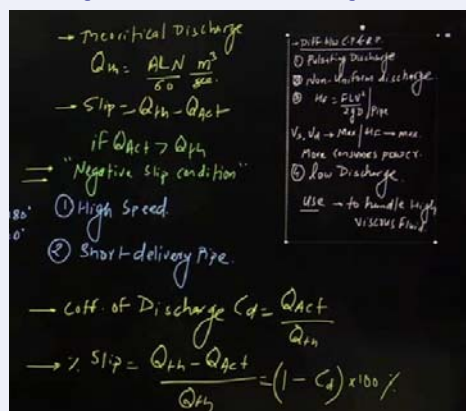 → Theoritical Discharge
Qth = ALN/60 m³/sec
→ Slip = Qth - QAct
if QAct > Qth
"Negative Slip condition"
180°
0°
① High Speed.
② Short delivery Pipe.
→ Coff. of Discharge Cd = QAct/Qth
→ % Slip = (Qth - QAct)/Qth = (1 - Cd) × 100 %
→ Diff. b/w C.P & R.P
① Pulsating Discharge
② Non-Uniform discharge
③ Hf = FLV²/2gD | Pipe
Vs, Vd → Max | HF → max.
More consumes power.
④ low Discharge.
use → to handle High
Viscous Fluid